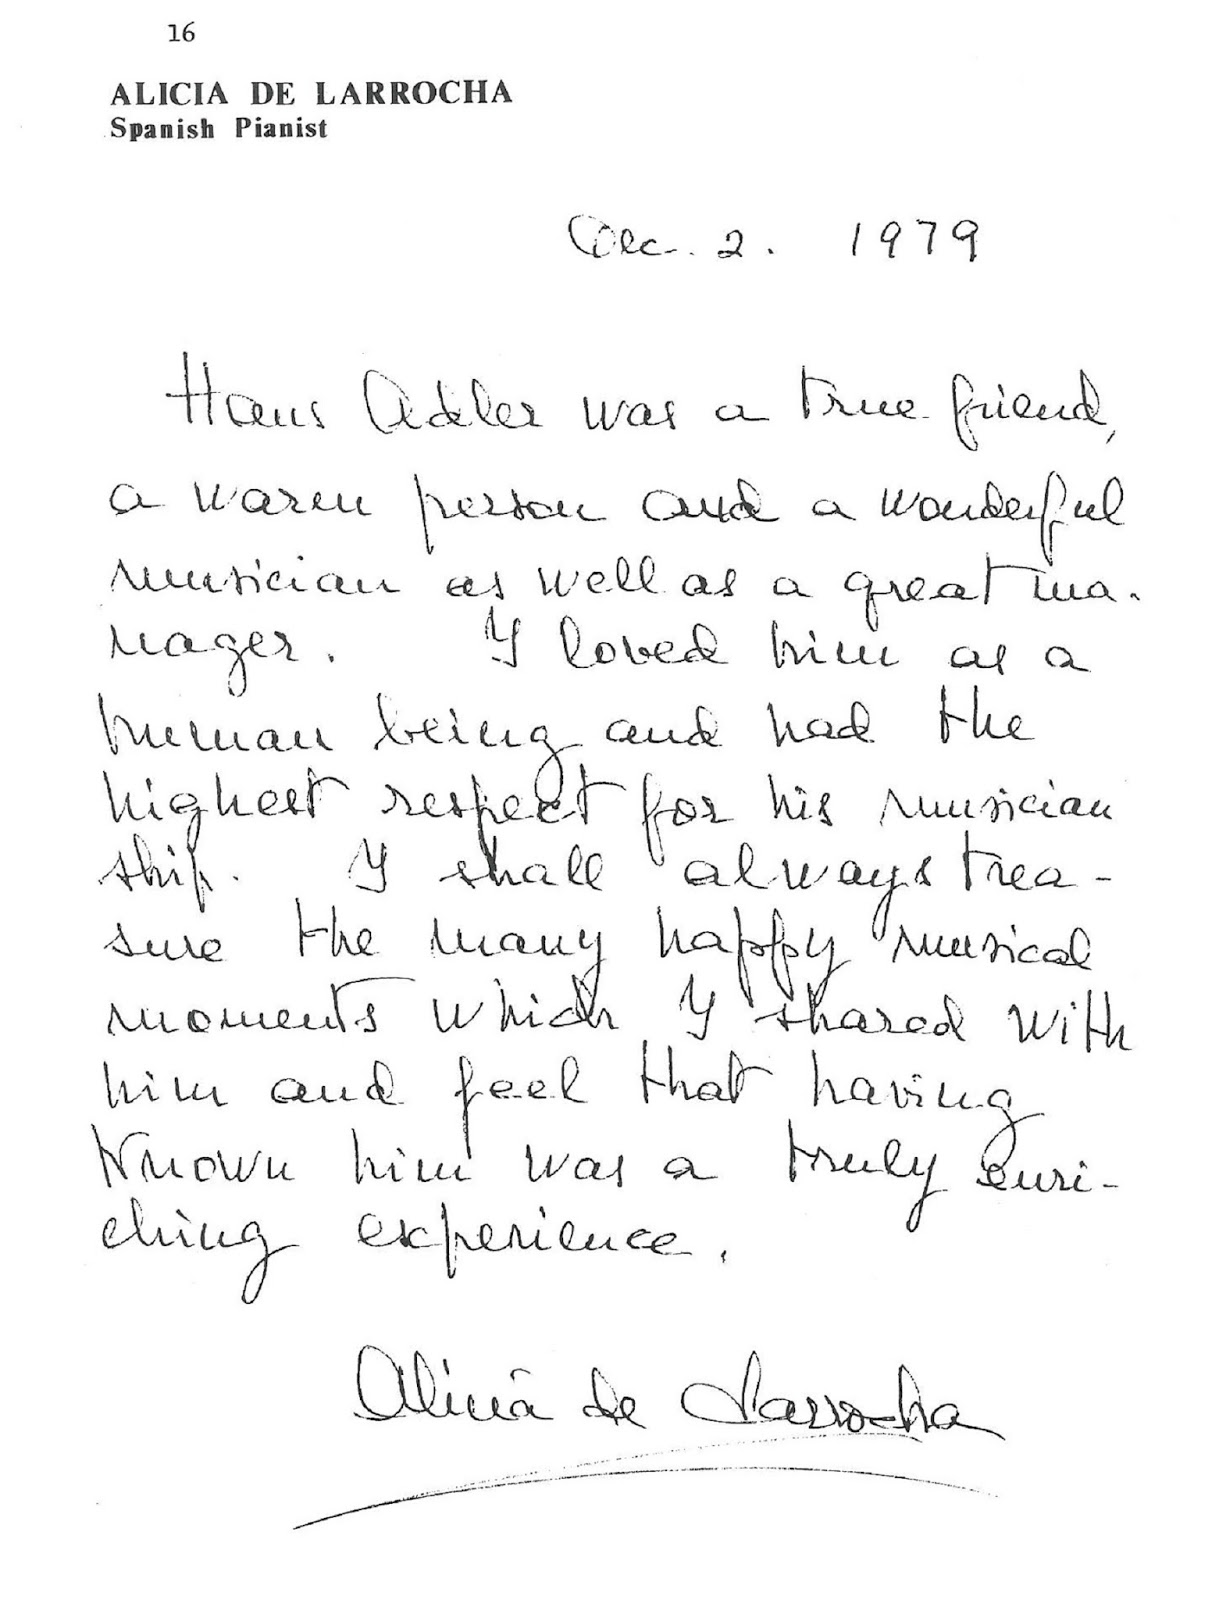 16
ALICIA DE LARROCHA
Spanish Pianist
Dec. 2. 1979
Hans Adler was a true friend,
a warm person and a wonderful
musician as well as a great ma-
nager. I loved him as a
human being and had the
highest respect for his musician
ship. I shall always trea-
sure the many happy musical
moments which I shared with
him and feel that having
known him was a truly enri-
ching experience.
Alicia de Larrocha